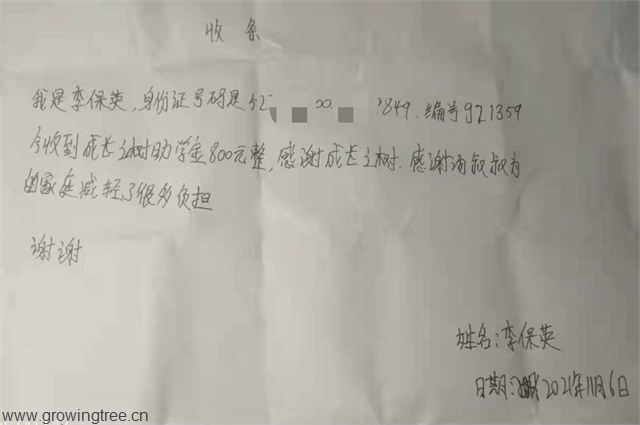 收条
我是李保英,身份证号码是52 00 849.编号921359
今收到成长之树助学金800元整,感谢成长之树.感谢汤叔叔为
由家庭减轻了很多负担
谢谢
姓名:李保英
日期: 2021年11月6日
www.growingtree.cn